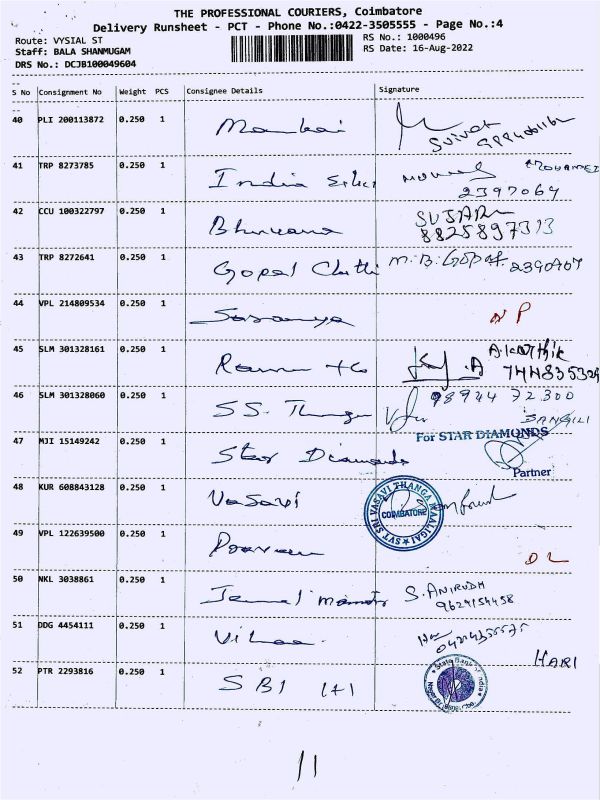 THE PROFESSIONAL COURIERS, Coimbatore
Delivery Runsheet - PCT - Phone No.:0422-3505555 - Page No.:4
Route: VYSIAL ST
RS No.: 1000496
Staff: BALA SHANMUGAM
RS Date: 16-Aug-2022
DRS No.: DCJB100049604
S No Consignment No Weight PCS Consignee Details Signature
40 PLI 200113872 0.250 1
41 TRP 8273785 0.250 1 India MOHAMED
2397064
42 CCU 100322797 0.250 1 Bhuvana
8825897313
43 TRP 8272641 0.250 1 Gopal Chetti M.B.Gopal 2390707
44 VPL 214809534 0.250 1 Saranya NP
45 SLM 301328161 0.250 1 A.Karthik
744835329
46 SLM 301328060 0.250 1 SS. 98944 72300
SANGILI
47 MJI 15149242 0.250 1 Star Diamonds For STAR DIAMONDS
Partner
48 KUR 608843128 0.250 1 Vasavi SVT SRI VASAVI THANGA MAALIGAI COIMBATORE
49 VPL 122639500 0.250 1 DL
50 NKL 3038861 0.250 1 S. ANIRUDH
9629154458
51 DDG 4454111 0.250 1
HARI
52 PTR 2293816 0.250 1 SBI 1+1 State Bank of India
11